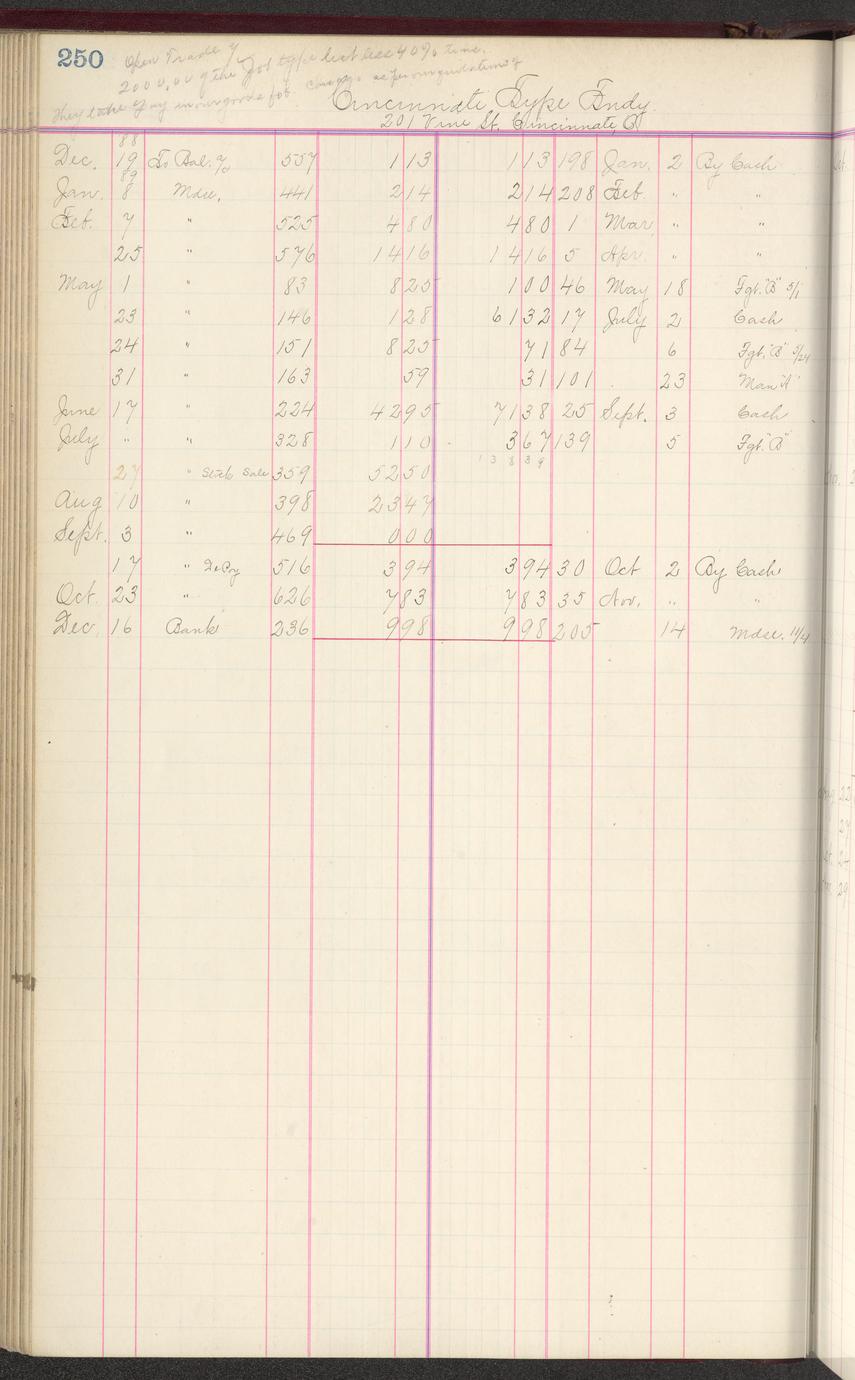 250
Open Trade
2000.00 of the Job type list less 40% time.
They take pay in our goods fob. Chicago as per our quotations
Cincinnati Type Fndy
201 Vine St. Cincinnati, O
88
Dec. 19 To Bal. 557 1 13 1 13 198 Jan. 2 By Cash
89
Jan. 8 Mdse. 441 2 14 2 14 208 Feb. " "
Feb. 7 " 525 4 80 4 80 1 Mar. " "
25 " 576 14 16 14 16 5 Apr. " "
May 1 " 83 8 25 1 00 46 May 18 Fgt. "B" 5/1
23 " 146 1 28 61 32 17 July 2 Cash
24 " 151 8 25 71 84 6 Fgt. "B" 5/24
31 " 163 59 31 101 23 Man "A"
June 17 " 224 42 95 71 38 25 Sept. 3 Cash
July " " 328 1 10 3 67 139 5 Fgt. "B"
138 39
27 " Stub Sale 359 52 50
Aug 10 " 398 23 47
Sept. 3 " 469 0 00
17 " DePoy 516 3 94 3 94 30 Oct 2 By Cash
Oct. 23 " 626 7 83 7 83 35 Nov. " "
Dec. 16 Bank 236 9 98 9 98 205 14 Mdse. 11/4